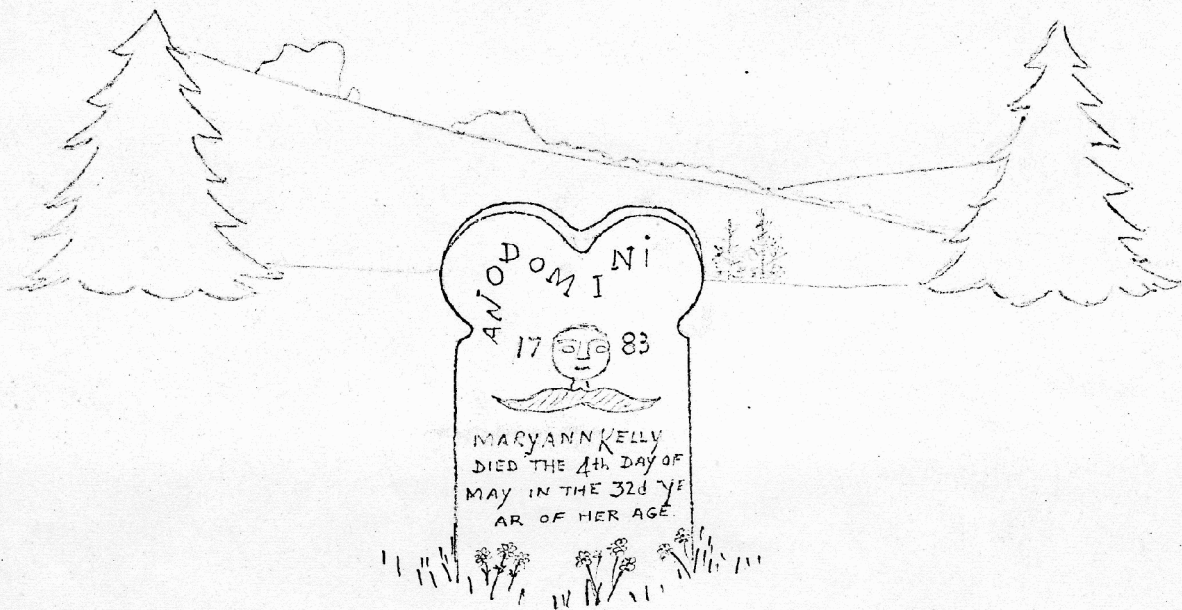 ANODOMINI
17 83
MARYANN KELLY
DIED THE 4th DAY OF
MAY IN THE 32d YE
AR OF HER AGE.